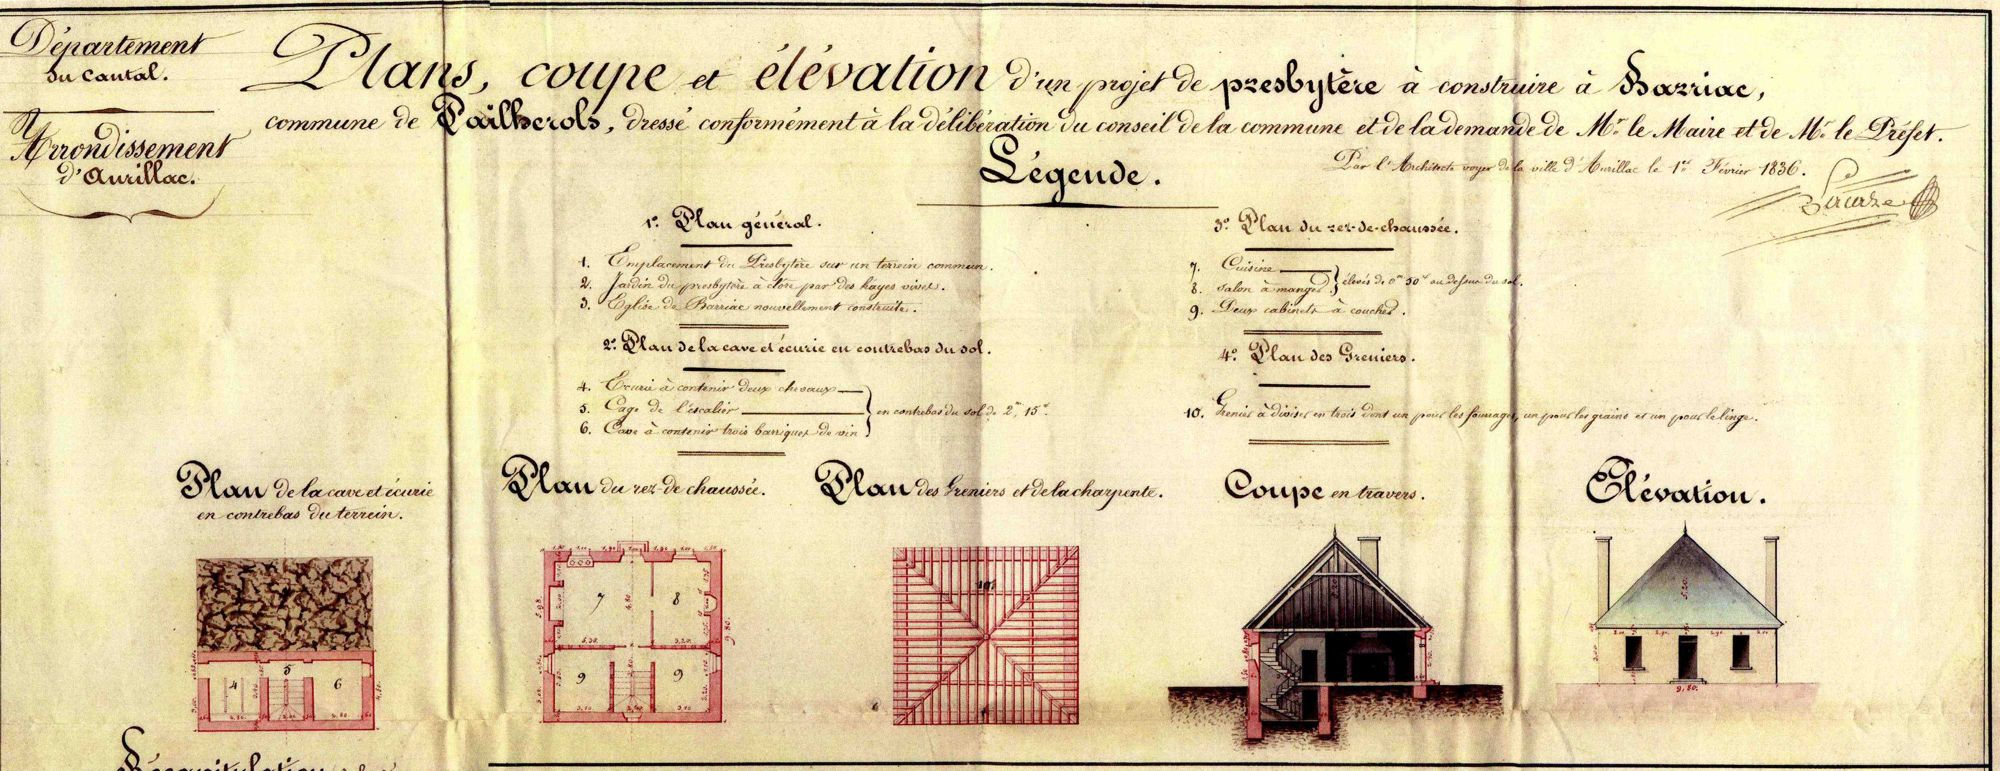 Département
du Cantal.
Arrondissement
d'Aurillac.
Plans, coupe et élévation d'un projet de presbytère à construire à Barriac,
commune de Pailherols, dressé conformément à la délibération du conseil de la commune et de la demande de Mr. le Maire et de Mr. le Préfet.
Par l'Architecte voyer de la ville d'Aurillac le 1er Février 1836.
Légende.
1º. Plan général.
1. Emplacement du Presbytère sur un terrein commun.
2. Jardin du presbytère à clore par des hayes vives.
3. Eglise de Barriac nouvellement construite.
2º. Plan de la cave et écurie en contrebas du sol.
4. Ecurie à contenir deux chevaux
5. Cage de l'escalier
6. Cave à contenir trois barriques de vin
en contrebas du sol de 2m, 15c.
3º Plan du rez-de-chaussée.
7. Cuisine
8. Salon à manger
élevés de 0m 50c au dessus du sol.
9. Deux cabinets à coucher.
4º. Plan des Greniers.
10. Grenier à diviser en trois dont un pour les fourrages, un pour les grains et un pour le linge.
Plan de la cave et écurie
en contrebas du terrein.
4 5 6
Plan du rez-de chaussée.
7 8
9 9
5,30. 3,20.
9,80.
Plan des Greniers et de la charpente.
10.
Coupe en travers.
Élévation.
5,20.
9,80.
Récapitulation